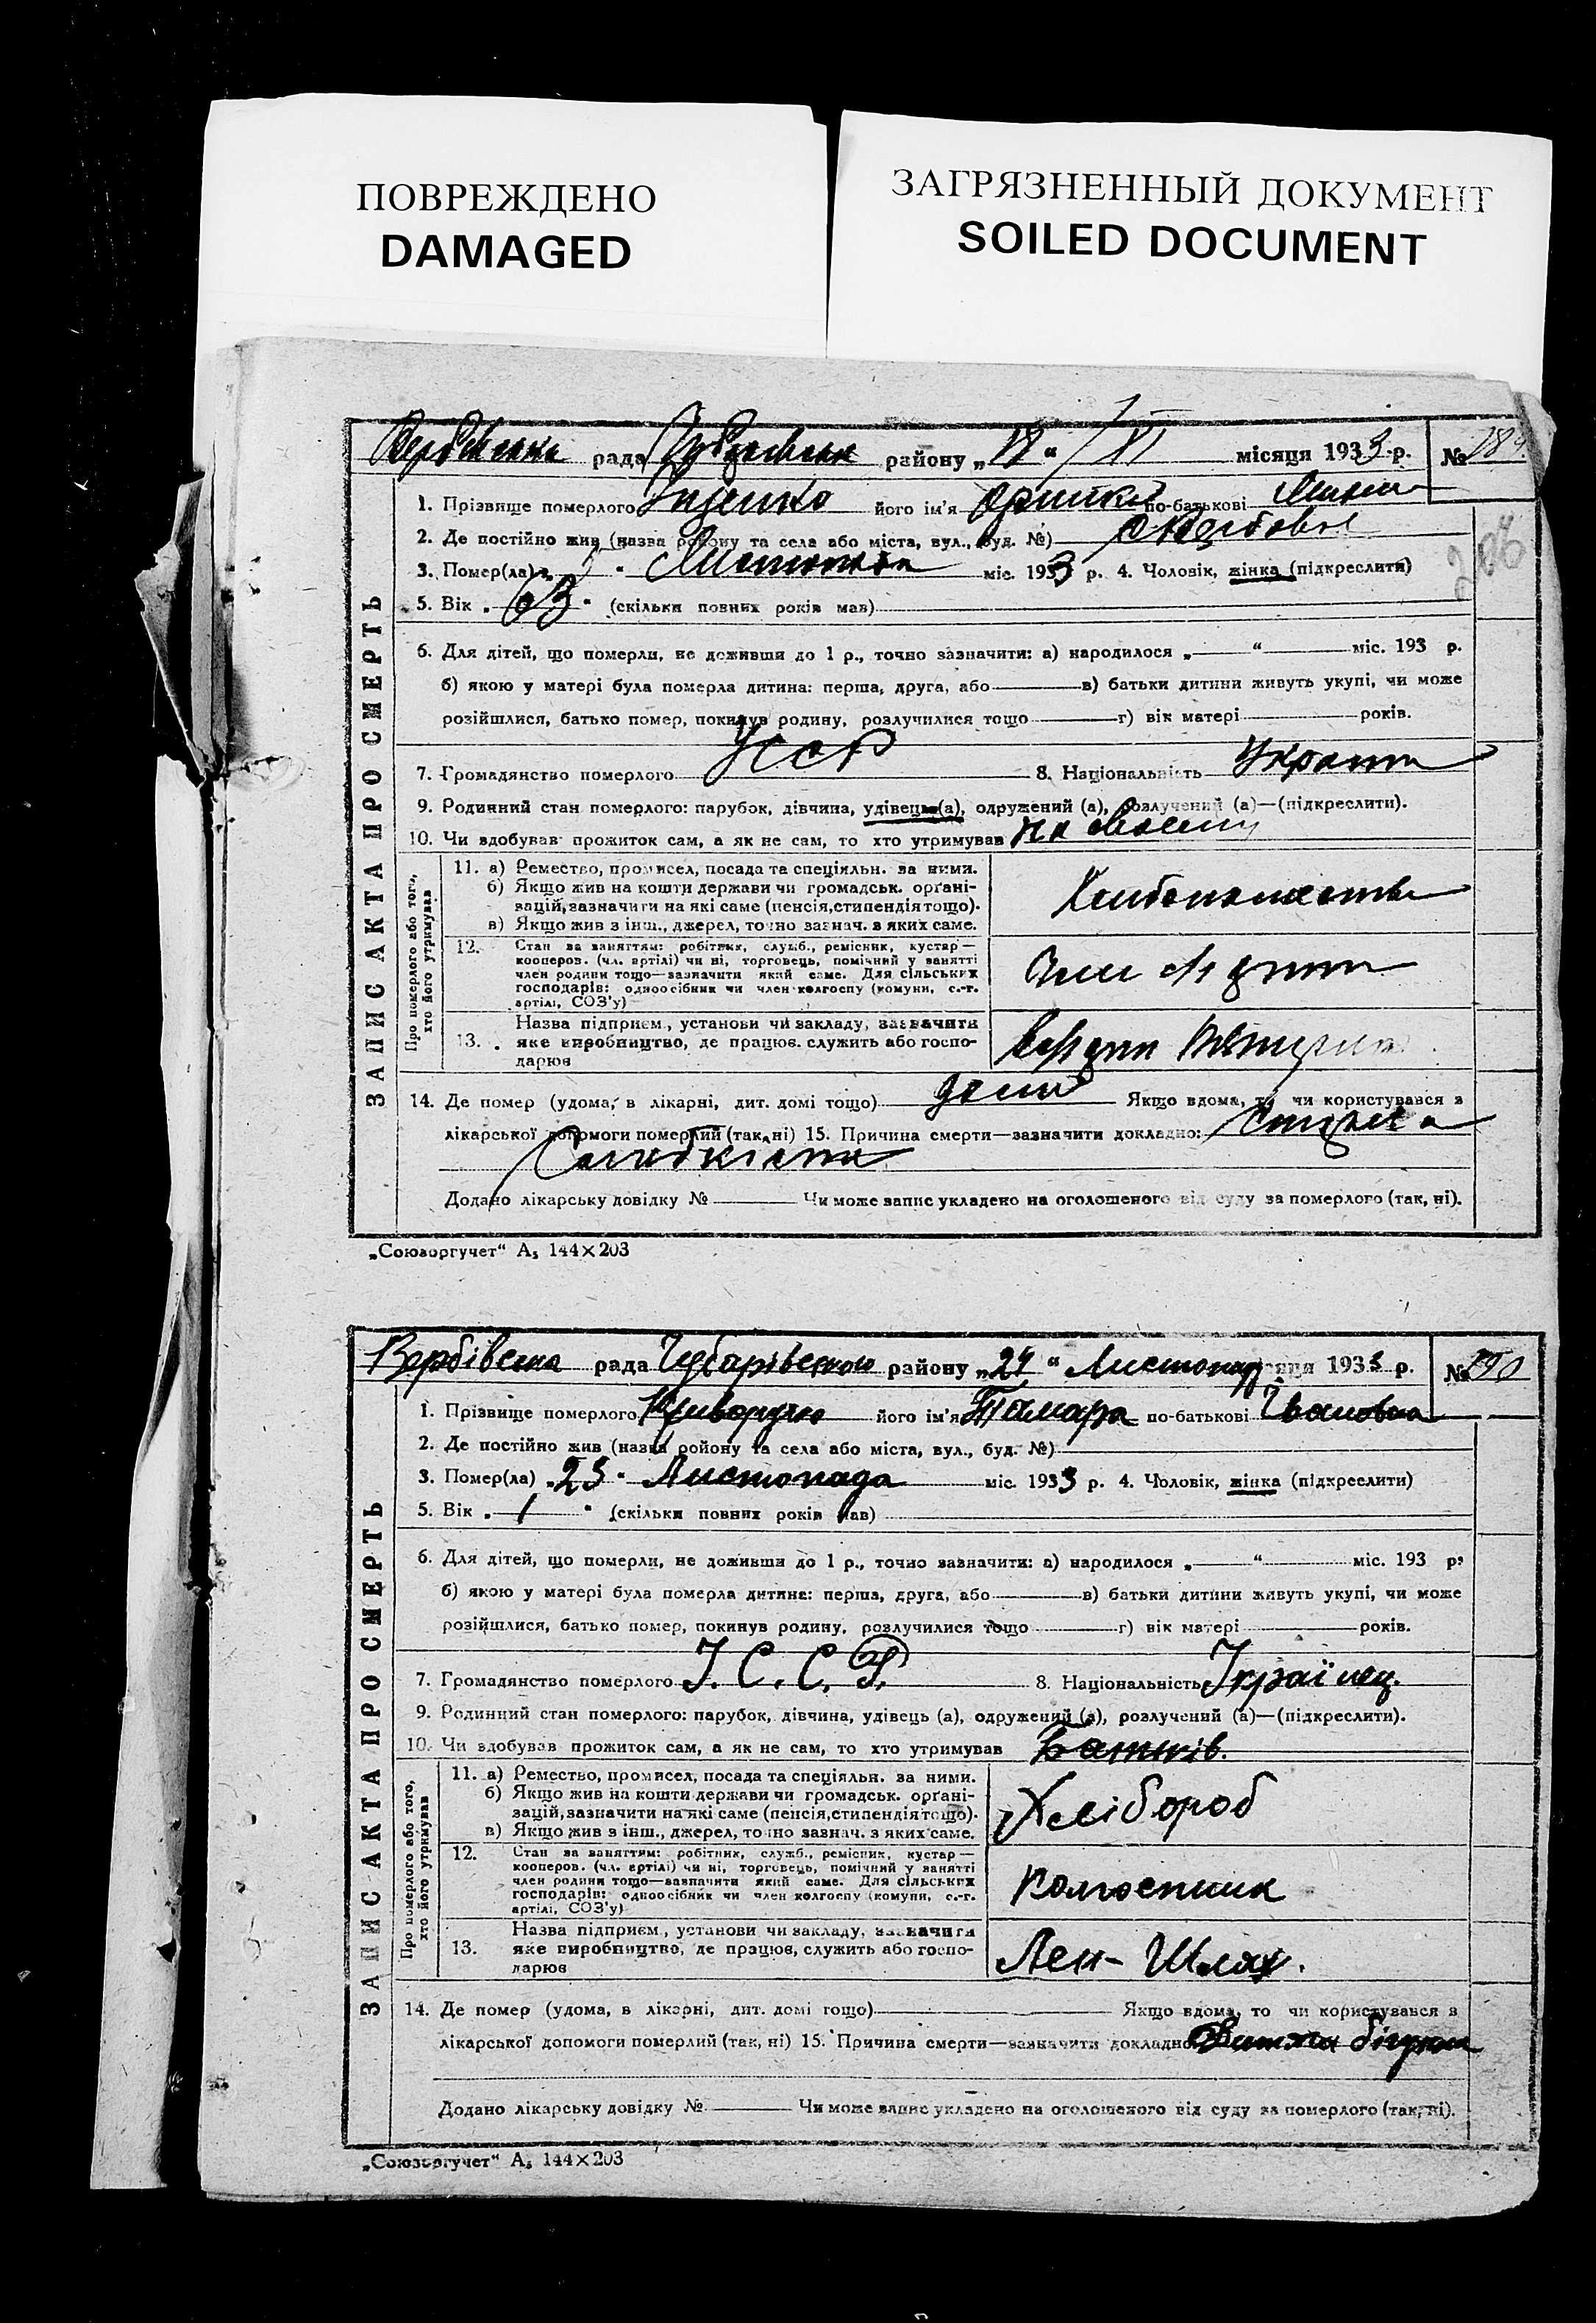 ПОВРЕЖДЕНО
DAMAGED
ЗАГРЯЗНЕННЫЙ ДОКУМЕНТ
SOILED DOCUMENT
ЗАПИС АКТА ПРО СМЕРТЬ
рада району „18“ /XI місяця 1933 р. № 189.
1. Прізвище померлого його ім'я по-батькові
2. Де постійно жив (назва району та села або міста, вул., буд. №)
3. Помер(ла) „ “ Листопада міс. 1933 р. 4. Чоловік, жінка (підкреслити)
206
5. Вік „63“ (скільки повних років мав)
6. Для дітей, що померли, не доживши до 1 р., точно зазначити: а) народилося „ “ міс. 193 р.
б) якою у матері була померла дитина: перша, друга, або в) батьки дитини живуть укупі, чи може
розійшлися, батько помер, покинув родину, розлучилися тощо г) вік матері років.
7. Громадянство померлого УССР 8. Національність
9. Родинний стан померлого: парубок, дівчина, удівець (а), одружений (а), розлучений (а)—(підкреслити).
10. Чи здобував прожиток сам, а як не сам, то хто утримував
Про померлого або того, хто його утримував
11. а) Ремество, промисел, посада та спеціяльн. за ними.
б) Якщо жив на кошти держави чи громадськ. органі-
зацій, зазначити на які саме (пенсія, стипендія тощо).
в) Якщо жив з інш., джерел, точно зазнач. з яких саме.
12. Стан за заняттям: робітник, служб., ремісник, кустар—
кооперов. (чл. артілі) чи ні, торговець, помічний у занятті
член родини тощо—зазначити який саме. Для сільських
господарів: одноосібник чи член колгоспу (комуни, с.-г.
артілі, СОЗ'у)
Назва підприєм., установи чи закладу, зазначити
13. яке виробництво, де працюв. служить або госпо-
дарюв
14. Де помер (удома, в лікарні, дит. домі тощо) дома Якщо вдома, то чи користувався з
лікарської допомоги померлий (так, ні) 15. Причина смерти—зазначити докладно:
Додано лікарську довідку № Чи може запис укладено на оголошеного від суду за померлого (так, ні).
„Союзоргучет“ А₅ 144×203
ЗАПИС АКТА ПРО СМЕРТЬ
Вербівська рада Чубарівського району „24“ Листопад місяця 1933 р. № 190
1. Прізвище померлого Криворучко його ім'я Тамара по-батькові Івановна
2. Де постійно жив (назва району та села або міста, вул., буд. №)
3. Помер(ла) „23“ Листопада міс. 1933 р. 4. Чоловік, жінка (підкреслити)
5. Вік „1“ (скільки повних років мав)
6. Для дітей, що померли, не доживши до 1 р., точно зазначити: а) народилося „ “ міс. 193 р.
б) якою у матері була померла дитина: перша, друга, або в) батьки дитини живуть укупі, чи може
розійшлися, батько помер, покинув родину, розлучилися тощо г) вік матері років.
7. Громадянство померлого У.С.С.Р. 8. Національність Українец.
9. Родинний стан померлого: парубок, дівчина, удівець (а), одружений (а), розлучений (а)—(підкреслити).
10. Чи здобував прожиток сам, а як не сам, то хто утримував Батьків.
Про померлого або того, хто його утримував
11. а) Ремество, промисел, посада та спеціяльн. за ними.
б) Якщо жив на кошти держави чи громадськ. органі-
зацій, зазначити на які саме (пенсія, стипендія тощо).
в) Якщо жив з інш., джерел, точно зазнач. з яких саме.
Хлібороб
12. Стан за заняттям: робітник, служб., ремісник, кустар—
кооперов. (чл. артілі) чи ні, торговець, помічний у занятті
член родини тощо—зазначити який саме. Для сільських
господарів: одноосібник чи член колгоспу (комуни, с.-г.
артілі, СОЗ'у)
Колгоспник
Назва підприєм., установи чи закладу, зазначити
13. яке виробництво, де працюв, служить або госпо-
дарюв
Лен-Шлях.
14. Де помер (удома, в лікарні, дит. домі тощо) Якщо вдома, то чи користувався з
лікарської допомоги померлий (так, ні) 15. Причина смерти—зазначити докладно
Додано лікарську довідку № Чи може запис укладено на оголошеного від суду за померлого (так, ні).
„Союзоргучет“ А₅ 144×203